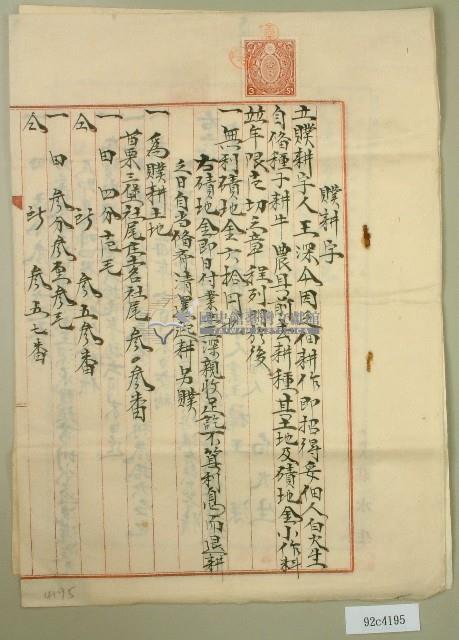 贌耕字
立贌耕字人王深今因 佃耕作即招得妥佃人白大生
自備種子耕牛農具前 耕種其土地及磧地金小作料
並年限定切立章程列 後
一無利磧地金六拾円
右磧地金即日付業 深親收足訖不算利息而退耕
之日自當備齊清 耕另贌
一為贌耕土地
苗栗三堡社尾庄土名社尾參〇參番
一田四分壱毛
仝 所 參五參番
一田參分參厘參毛
仝 所 參五七番
國史館臺灣文獻館
4195
92c4195